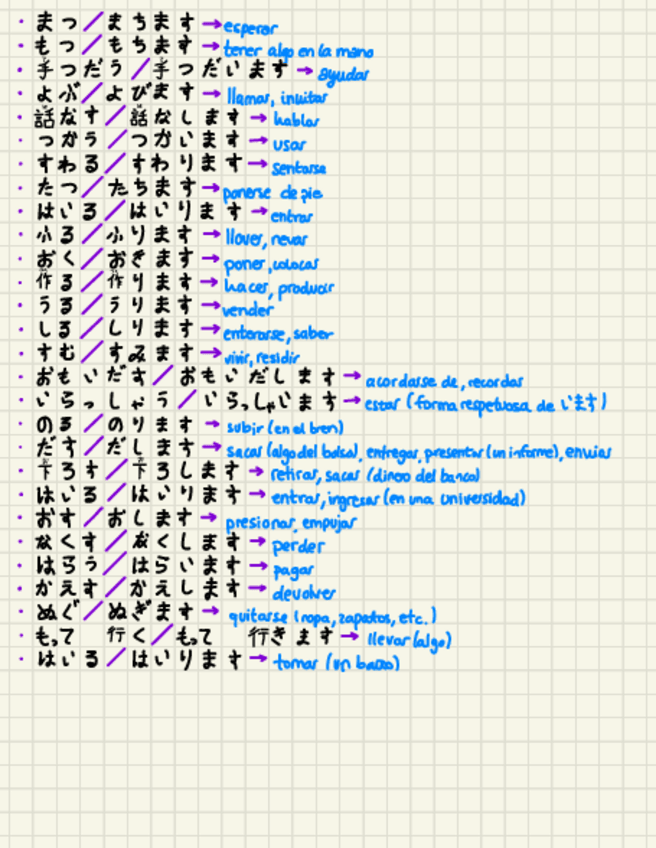 ・まつ／まちます→esperar
・もつ／もちます→tener algo en la mano
・手つだう／手つだいます→ayudar
・よぶ／よびます→llamar, invitar
・話なす／話なします→hablar
・つかう／つかいます→usar
・すわる／すわります→sentarse
・たつ／たちます→ponerse de pie
・はいる／はいります→entrar
・ふる／ふります→llover, nevar
・おく／おきます→poner, colocar
・作る／作ります→hacer, producir
・うる／うります→vender
・しる／しります→enterarse, saber
・すむ／すみます→vivir, residir
・おもいだす／おもいだします→acordarse de, recordar
・いらっしゃう／いらっしゃいます→estar (forma respetuosa de います)
・のる／のります→subir (en el tren)
・だす／だします→sacar (algo del bolso), entregar, presentar (un informe), enviar
・下ろす／下ろします→retirar, sacar (dinero del banco)
・はいる／はいります→entrar, ingresar (en una universidad)
・おす／おします→presionar, empujar
・なくす／なくします→perder
・はらう／はらいます→pagar
・かえす／かえします→devolver
・ぬぐ／ぬぎます→quitarse (ropa, zapatos, etc.)
・もって 行く／もって 行きます→llevar (algo)
・はいる／はいります→tomar (un baño)